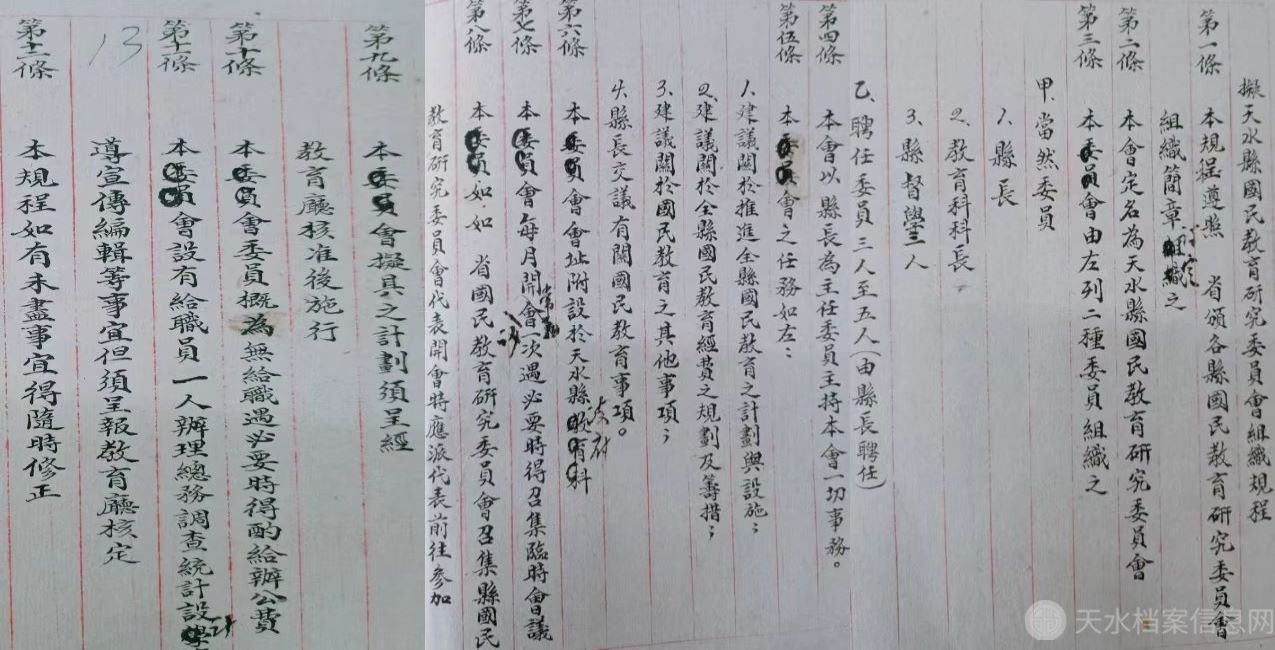 擬天水縣國民教育研究委員會組織規程
第一條 本規程遵照 省頒各縣國民教育研究委員會
組織簡章訂定之
第二條 本會定名為天水縣國民教育研究委員會
第三條 本委員會由左列二種委員組織之
甲、當然委員
1、縣長
2、教育科科長
3、縣督學三人
乙、聘任委員三人至五人(由縣長聘任)
第四條 本會以縣長為主任委員主持本會一切事務。
第伍條 本委員會之任務如左：
1、建議關於推進全縣國民教育之計劃與設施；
2、建議關於全縣國民教育經費之規劃及籌措；
3、建議關於國民教育之其他事項；
4、縣長交議有關國民教育事項。
第六條 本委員會會址附設於天水縣政府
第七條 本委員會每月開常會一次遇必要時得召集臨時會議
第八條 本委員如如 省國民教育研究委員會召集縣國民
教育研究委員會代表開會時應派代表前往參加
第九條 本委員會擬具之計劃須呈經
教育廳核准後施行
第十條 本委員會委員概為無給職遇必要時得酌給辦公費
第十一條 本委員會設有給職員一人辦理總務調查統計設計
13
遵宣傳編輯等事宜但須呈報教育廳核定
第十二條 本規程如有未盡事宜得隨時修正
天水档案信息网